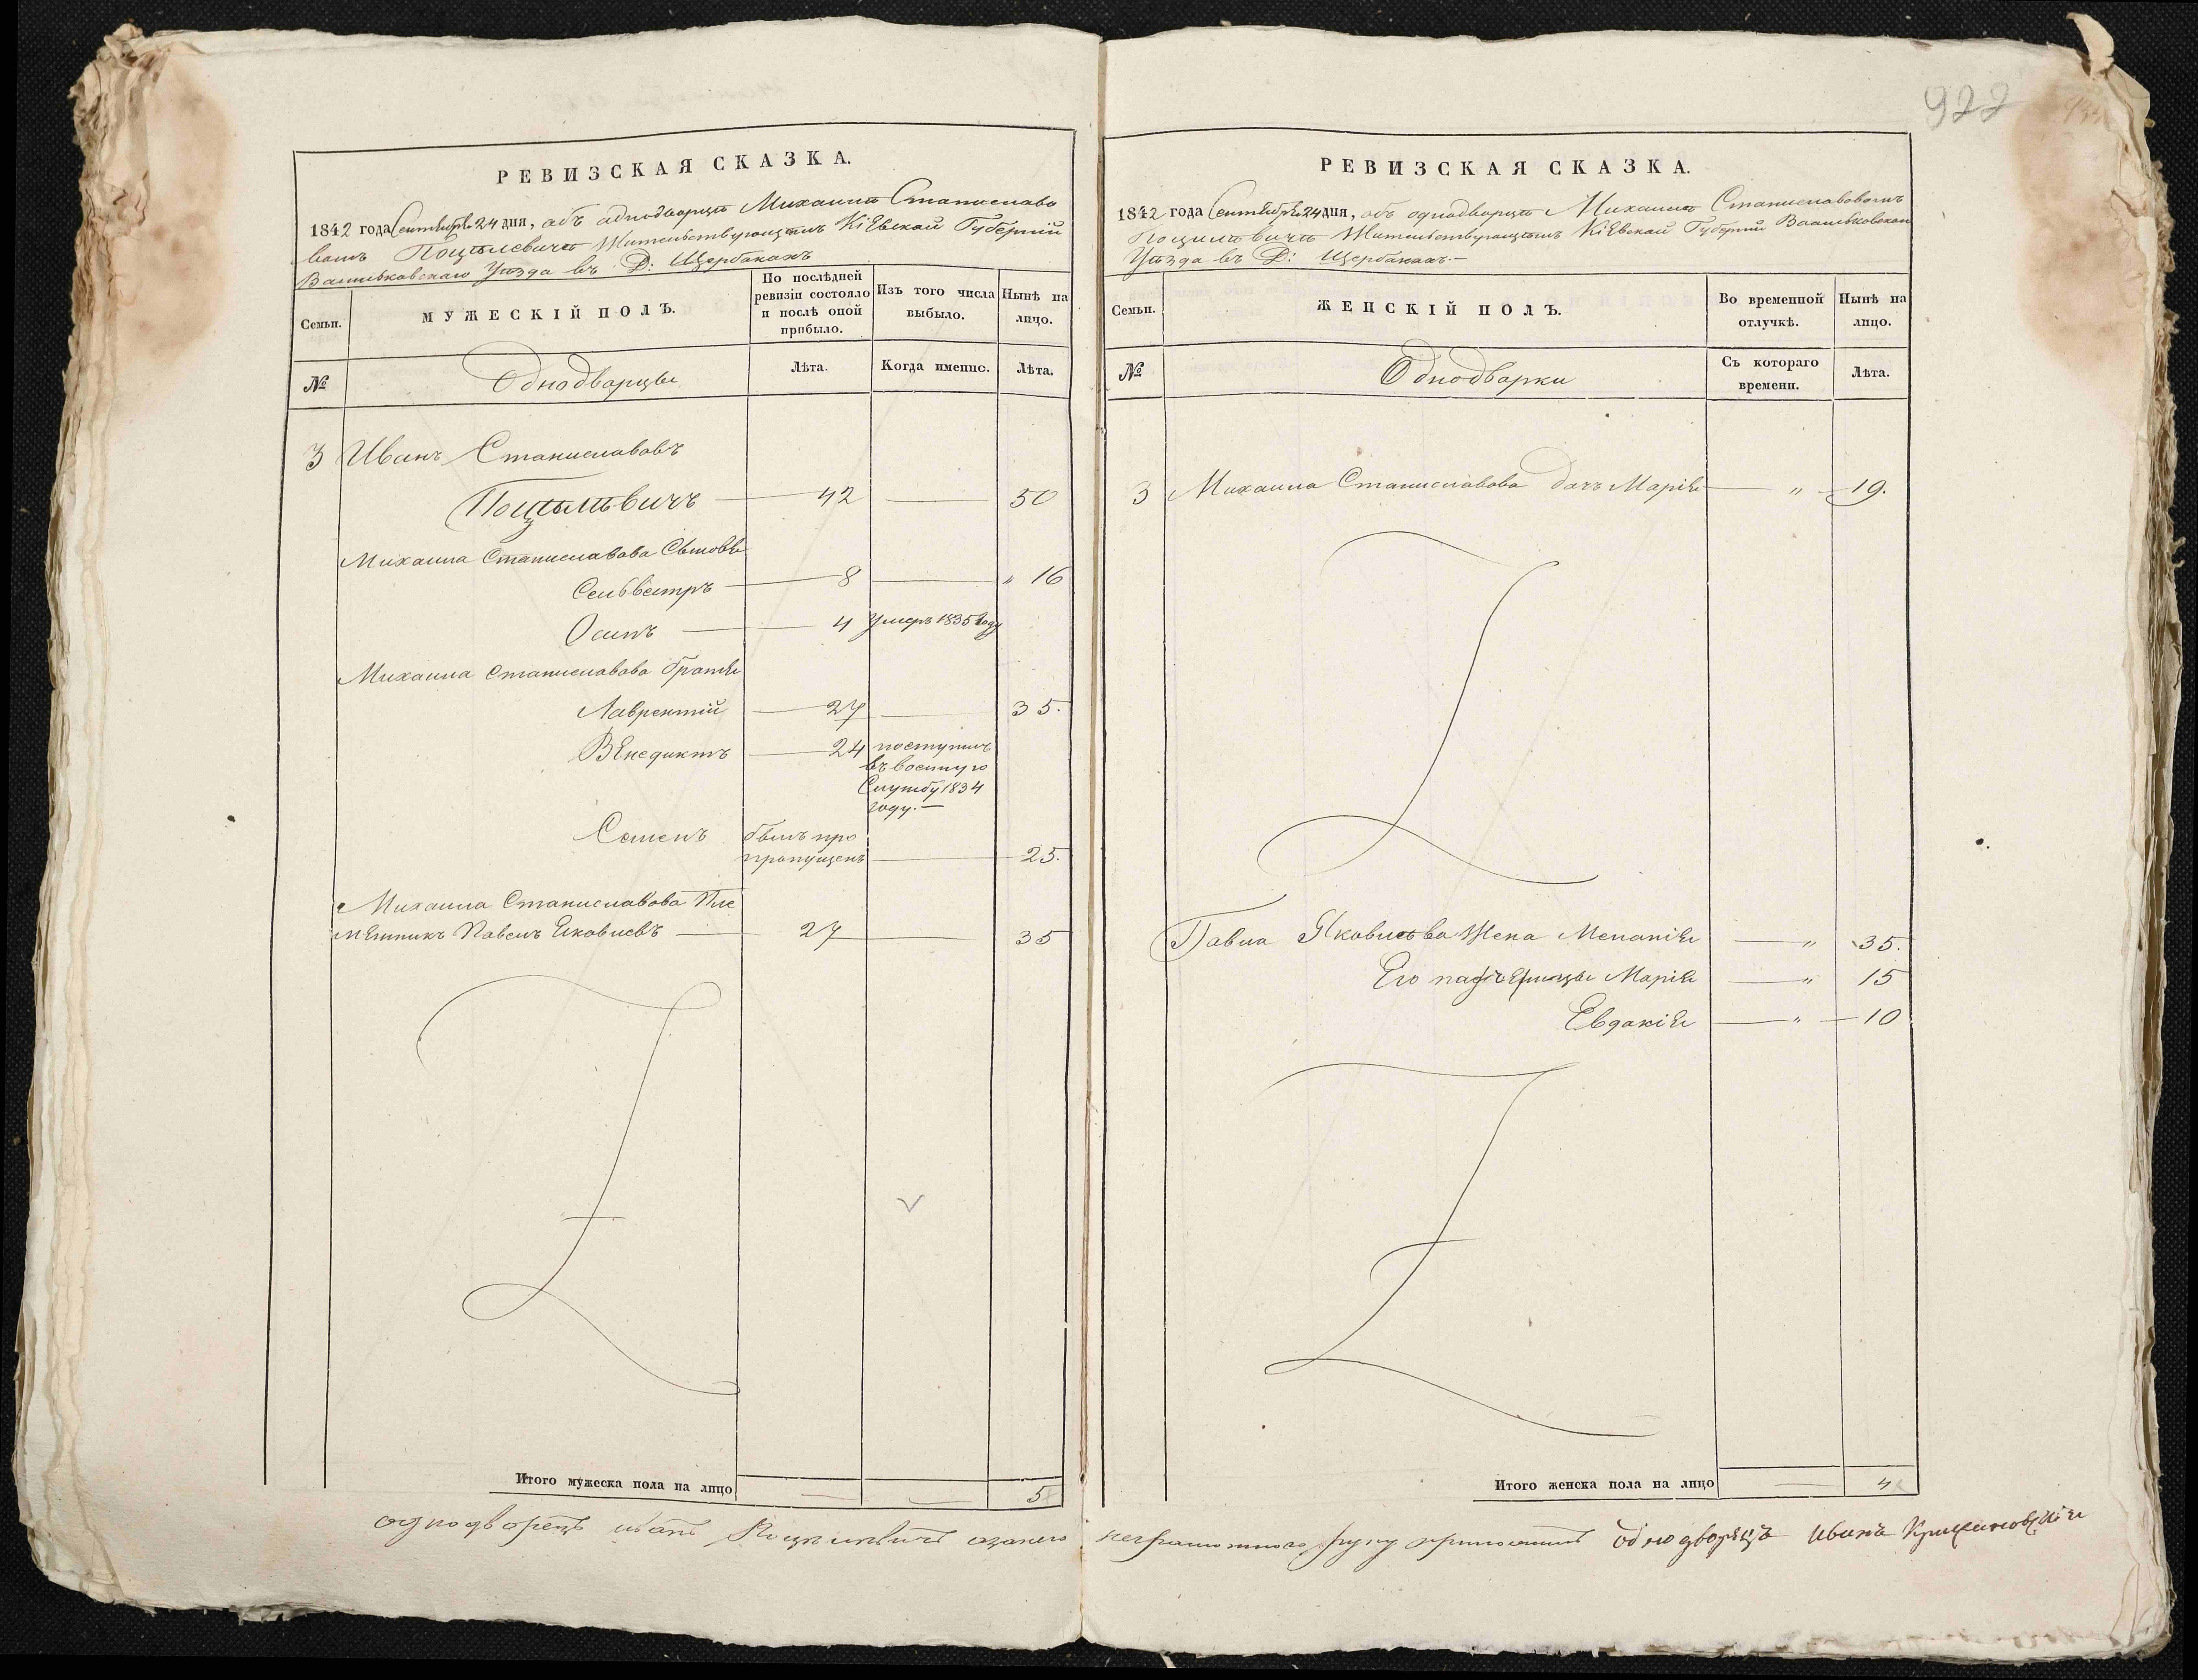 922
РЕВИЗСКАЯ СКАЗКА.
1842 года Сентября 24 дня, объ однодворцѣ Михаилѣ Станиславо
вомъ Поцѣлевичѣ Жительствующемъ Кіевской Губерніи
Васильковскаго Уѣзда въ Д: Щербакахъ
Семьи.
МУЖЕСКІЙ ПОЛЪ.
По послѣдней ревизіи состояло и послѣ оной прибыло.
Изъ того числа выбыло.
Нынѣ на лицо.
№
Однодворцы
Лѣта.
Когда именно.
Лѣта.
3 Иванъ Станиславовъ
Поцѣлѣвичъ 42 50
Михаила Станиславова Сыновья
Сельвестръ 8 " 16
Осипъ 4 Умеръ 1835 году
Михаила Станиславова братья
Лаврентій 27 35.
Венедиктъ 24 поступилъ
въ военную
Службу 1834
году.—
Семенъ былъ про
пропущенъ 25.
Михаила Станиславова Пле
мянникъ Павелъ Яковлевъ 27 35
Итого мужеска пола на лицо 5
РЕВИЗСКАЯ СКАЗКА.
1842 года Сентября 24 дня, объ однодворцѣ Михаилѣ Станиславовомъ
Поцилѣвичѣ Жительствующемъ Кіевской Губерніи Васильковскаго
Уѣзда въ Д: Щербакахъ.—
Семьи.
ЖЕНСКІЙ ПОЛЪ.
Во временной отлучкѣ.
Нынѣ на лицо.
№
Однодворки
Съ котораго времени.
Лѣта.
3 Михаила Станиславова дочь Марія " 19.
Павла Яковлева Жена Меланія " 35.
Его падчерицы Марія " 15
Евдакія " 10
Итого женска пола на лицо 4
однодворецъ иванъ Поцѣлѣвичъ азанего неграмотнаго руку приложилъ однодворецъ Иванъ